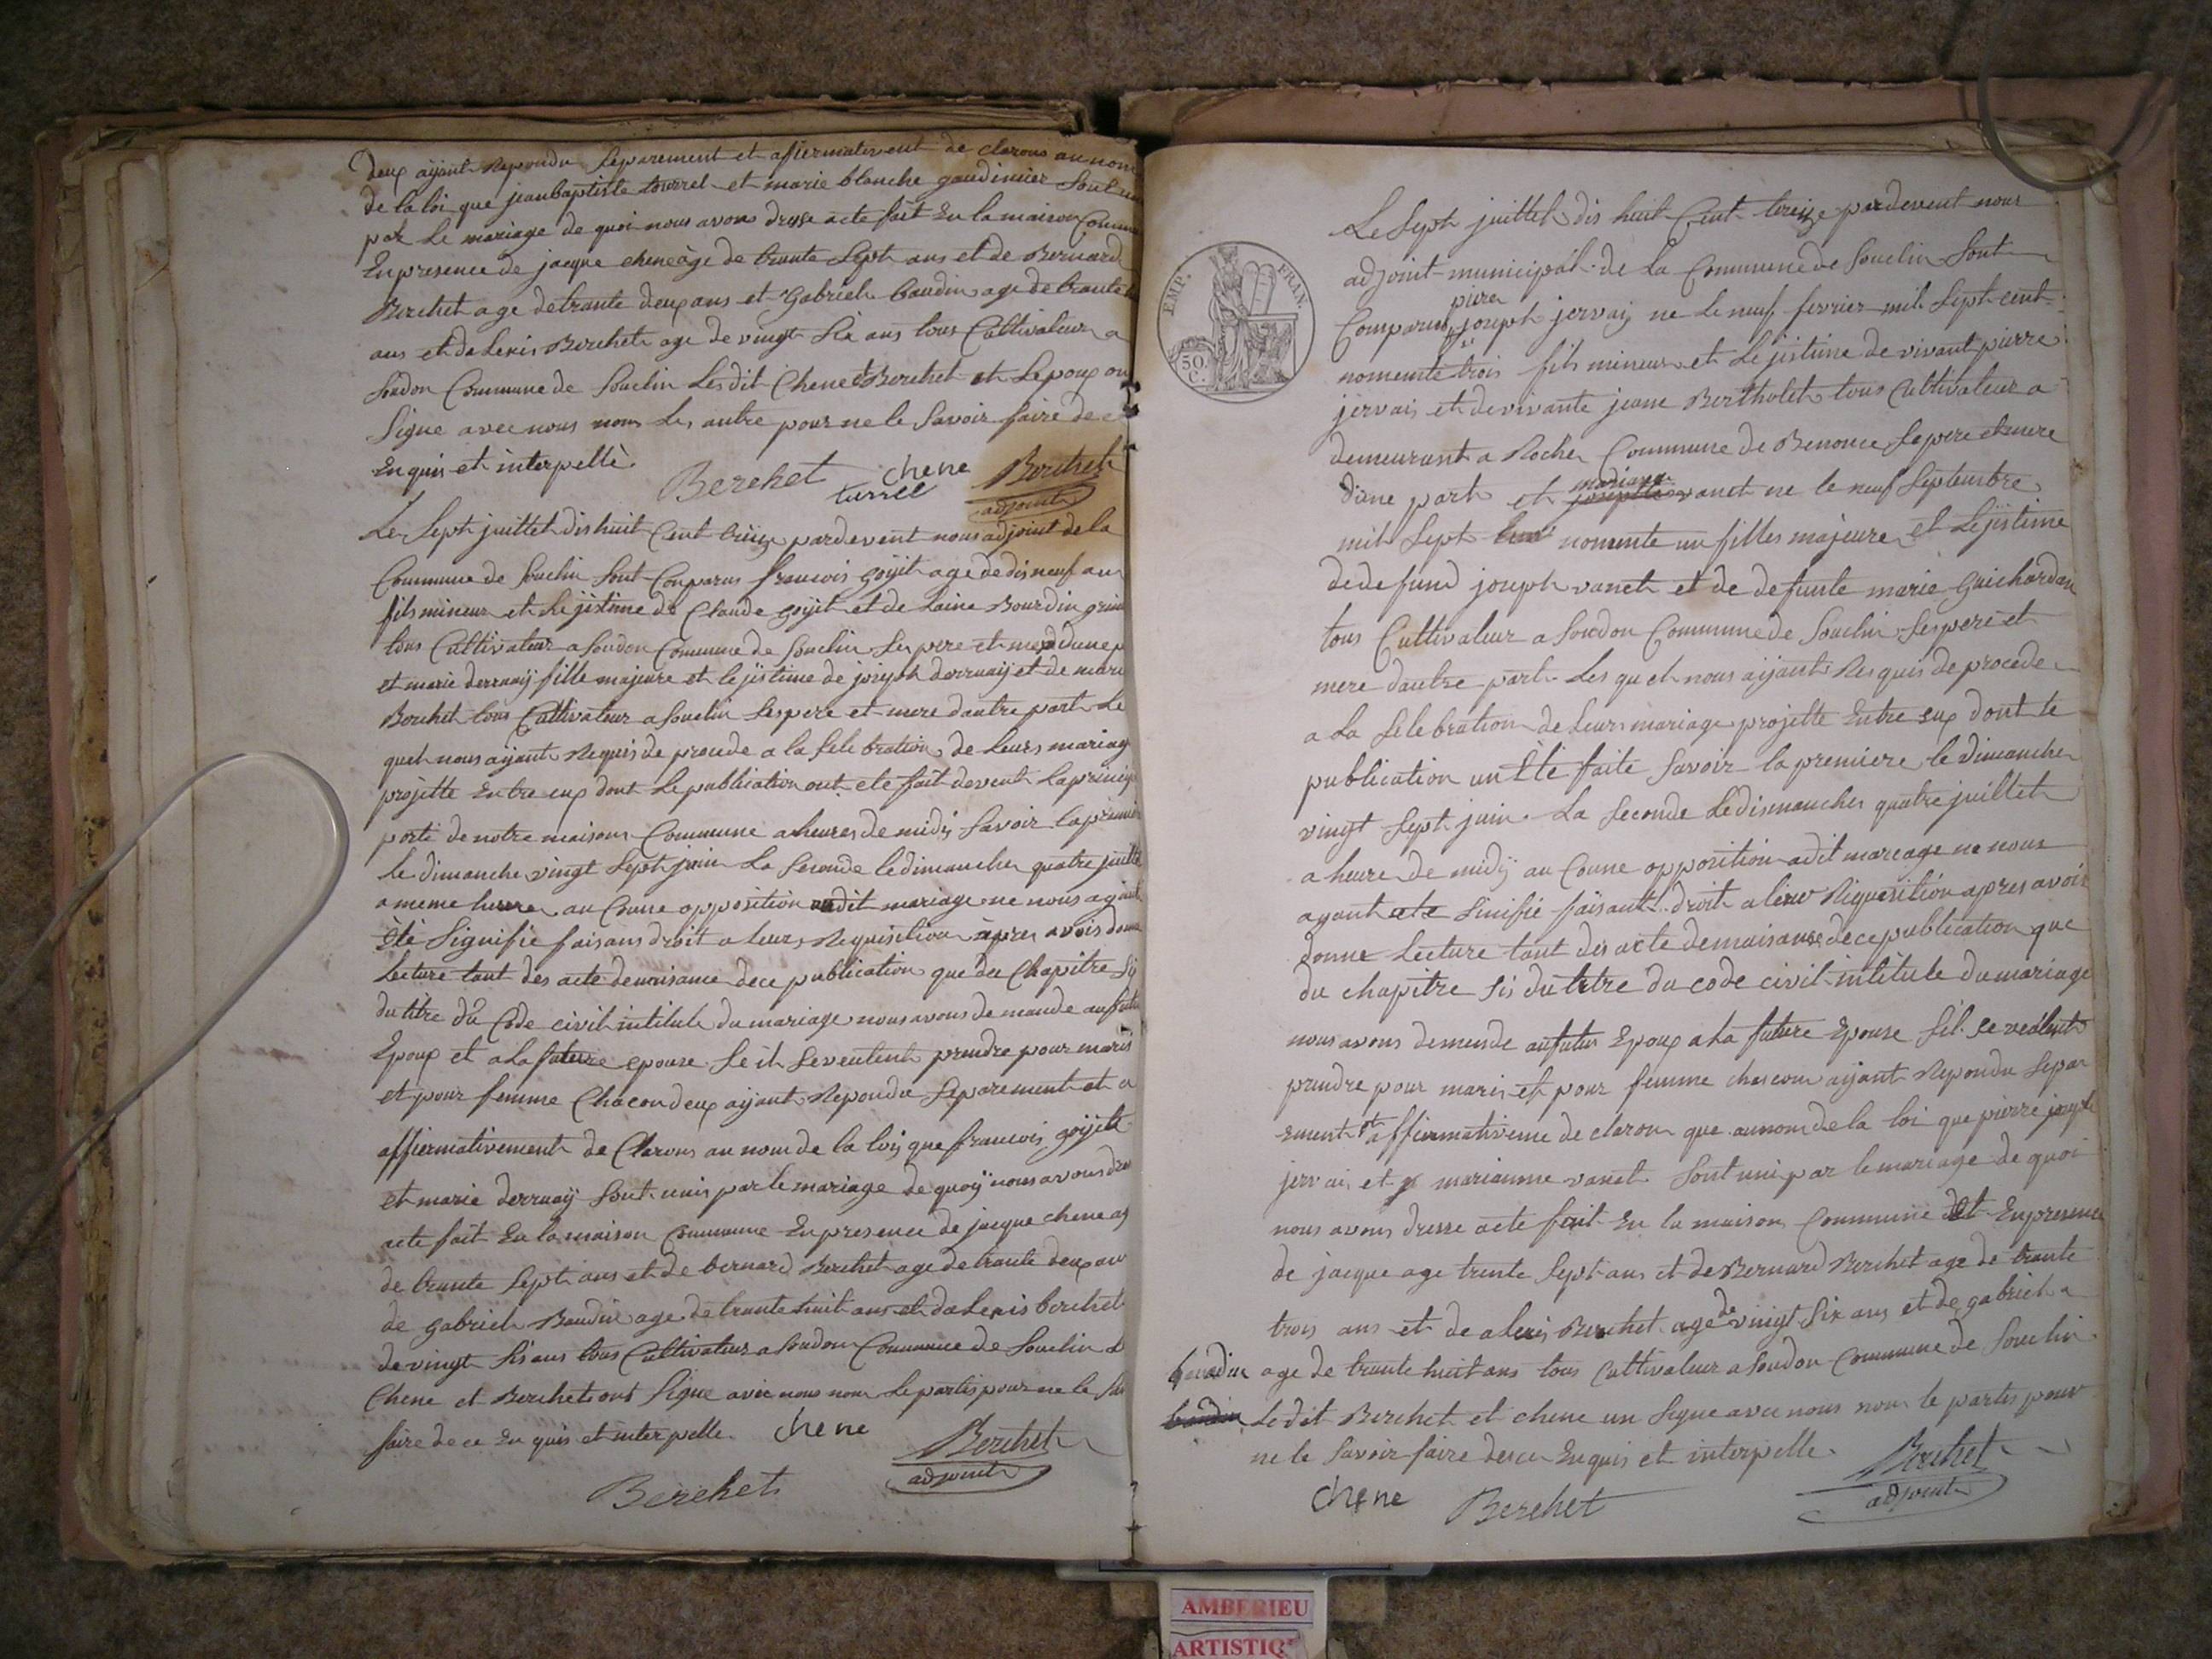 deux ayant Repondu Séparement et affiermativement de clarons au nom
de la loi que jean baptiste tourrel et marie blanche gaudimier Sont
par Le mariage de quoi nous avons dresse acte fait En la maison Commu
En presence de jacque chene âge de trante Sept ans et de Bernard
Berchet age de trante deux ans et Gabrieh baudin age de trante
ans et da Lexis Berchet age de vingt Six ans tous Cultivateur a
Soudon Commune de Souclin Lesdit Chene & Berchet et Lepoux on
Signe avec nous nom Les autre pour ne le Savoir faire de c
En quis et interpellè
Berchet chene Berchet
turrel adjoint
Le Sept juillet dis huit Cent treize pardevent nous adjoint de la
Commune de Souclin Sont Comparus francois goyit age de dis neuf an
fils mineur et Lejistime de Claude goyit et de Laine Bourdin
tous Cultivateur a Soudon Comune de Souclin Ses pere et mere dune p
et marie derruaÿ fille majeure et lejistime de joseph derruaÿ et de marie
Berchet tous Cultivateur a Souclin Ses pere et mere dautre part Le
quel nous ayant Requis de procude a la Selebration de Leurs mariag
projette Entre eux dont Le publication ont ete fait devent La princip
porte de notre maison Commune a heures de midy Savoir la premier
le dimanche vingt Sept juin La Seconde le dimanche quatre juillet
a meme heure au Cunne opposition audit mariage ne nous ayant
Èté Signifie faisans droit a leurs Requisition àpres avois donne
Lecture tant des acte denaisance de ce publication que du Chapitre Sis
du titre du Code civil intitule du mariage nous avons de mande au futur
Epoux et a La future epouse Se il Se veulent prendre pour maris
et pour femme Chacon deux ayant Repondu Separement et a
affiermativement de Clarons au nom de la loi que francois goÿit
et marie derruaÿ Sont unis par le mariage de quoÿ nous avons dres
acte fait En la maison Commune En presence de jacque chene ag
de trante Sept ans et de bernard Berchet age de trante deux an
de gabrieh Baudin age de trante huit ans et da Lexis berchet
de vingt Sis ans tous Cultivateur a Soudon Commune de Souclin L
Chene et Berchet ont Signe avec nous nom Le partis pour ne le Sav
faire de ce En quis et interpelle
chene Berchet
adjoint
Berchet
EMP. FRAN.
50. C.
Le Sept juillet dis huit Cent treize pardevent nous
adjoint municipal de La Commune de Souclin Sont
piere
Comparus joseph jervais ne Le neuf fevrier mil Sept cent
nomente trois fils mineur et Lejistime de vivant pierre
jervais et de vivante jeane Bertholet tous Cultivateur a
demeurant a Rocher Commune de Benonce Se pere et mere
mariane
dune part et josephte vanet ne le neuf Septembre
mil Sept Cent nomente un filles majeure et Lejistime
de defund joseph vanet et de defunte marie Guichardan
tous Cultivateur a Soudon Commune de Souclin Ses pere et
mere dautre part Les quel nous ayant Requis de procede
a La Selebration de Leurs mariage projette Entre eux dont le
publication un Eté faite Savoir la premiere le dimanche
vingt Sept juin La Seconde Le dismanches quatre juillet
a heure de midÿ au Counne opposition adit mareage ne nous
ayant ete Sinifie faisant droit a leur Riquisition apres avoir
donne Lecture tant des acte denaisance de ce publication que
du chapitre Sis du titre du code civil intitule du mariage
nous avons demende au futur Epoux a La future Epouse Sil Se veulent
prendre pour maris et pour femme chacon ayant Repondu Separ
ement et affiermativeme de claron que au nom de la loi que pierre joseph
jervais et marianne vanet Sont uni par le mariage de quoi
nous avons dresse acte fait En la maison Commune et En presence
de jacque age trente Sept ans et de Bernard Berchet age de trante
trois ans et de alexis Berchet age de vingt Six ans et de gabrieh
baudin age de trante huit ans tous Cultivateur a Soudon Commune de Souclin
baudin Ledit Berchet et chene un Signe avec nous nom le partis pour
ne le Savoir faire de ce Enquis et interpelle
Chene Berchet Berchet
adjoint
AMBERIEU
ARTISTIQ